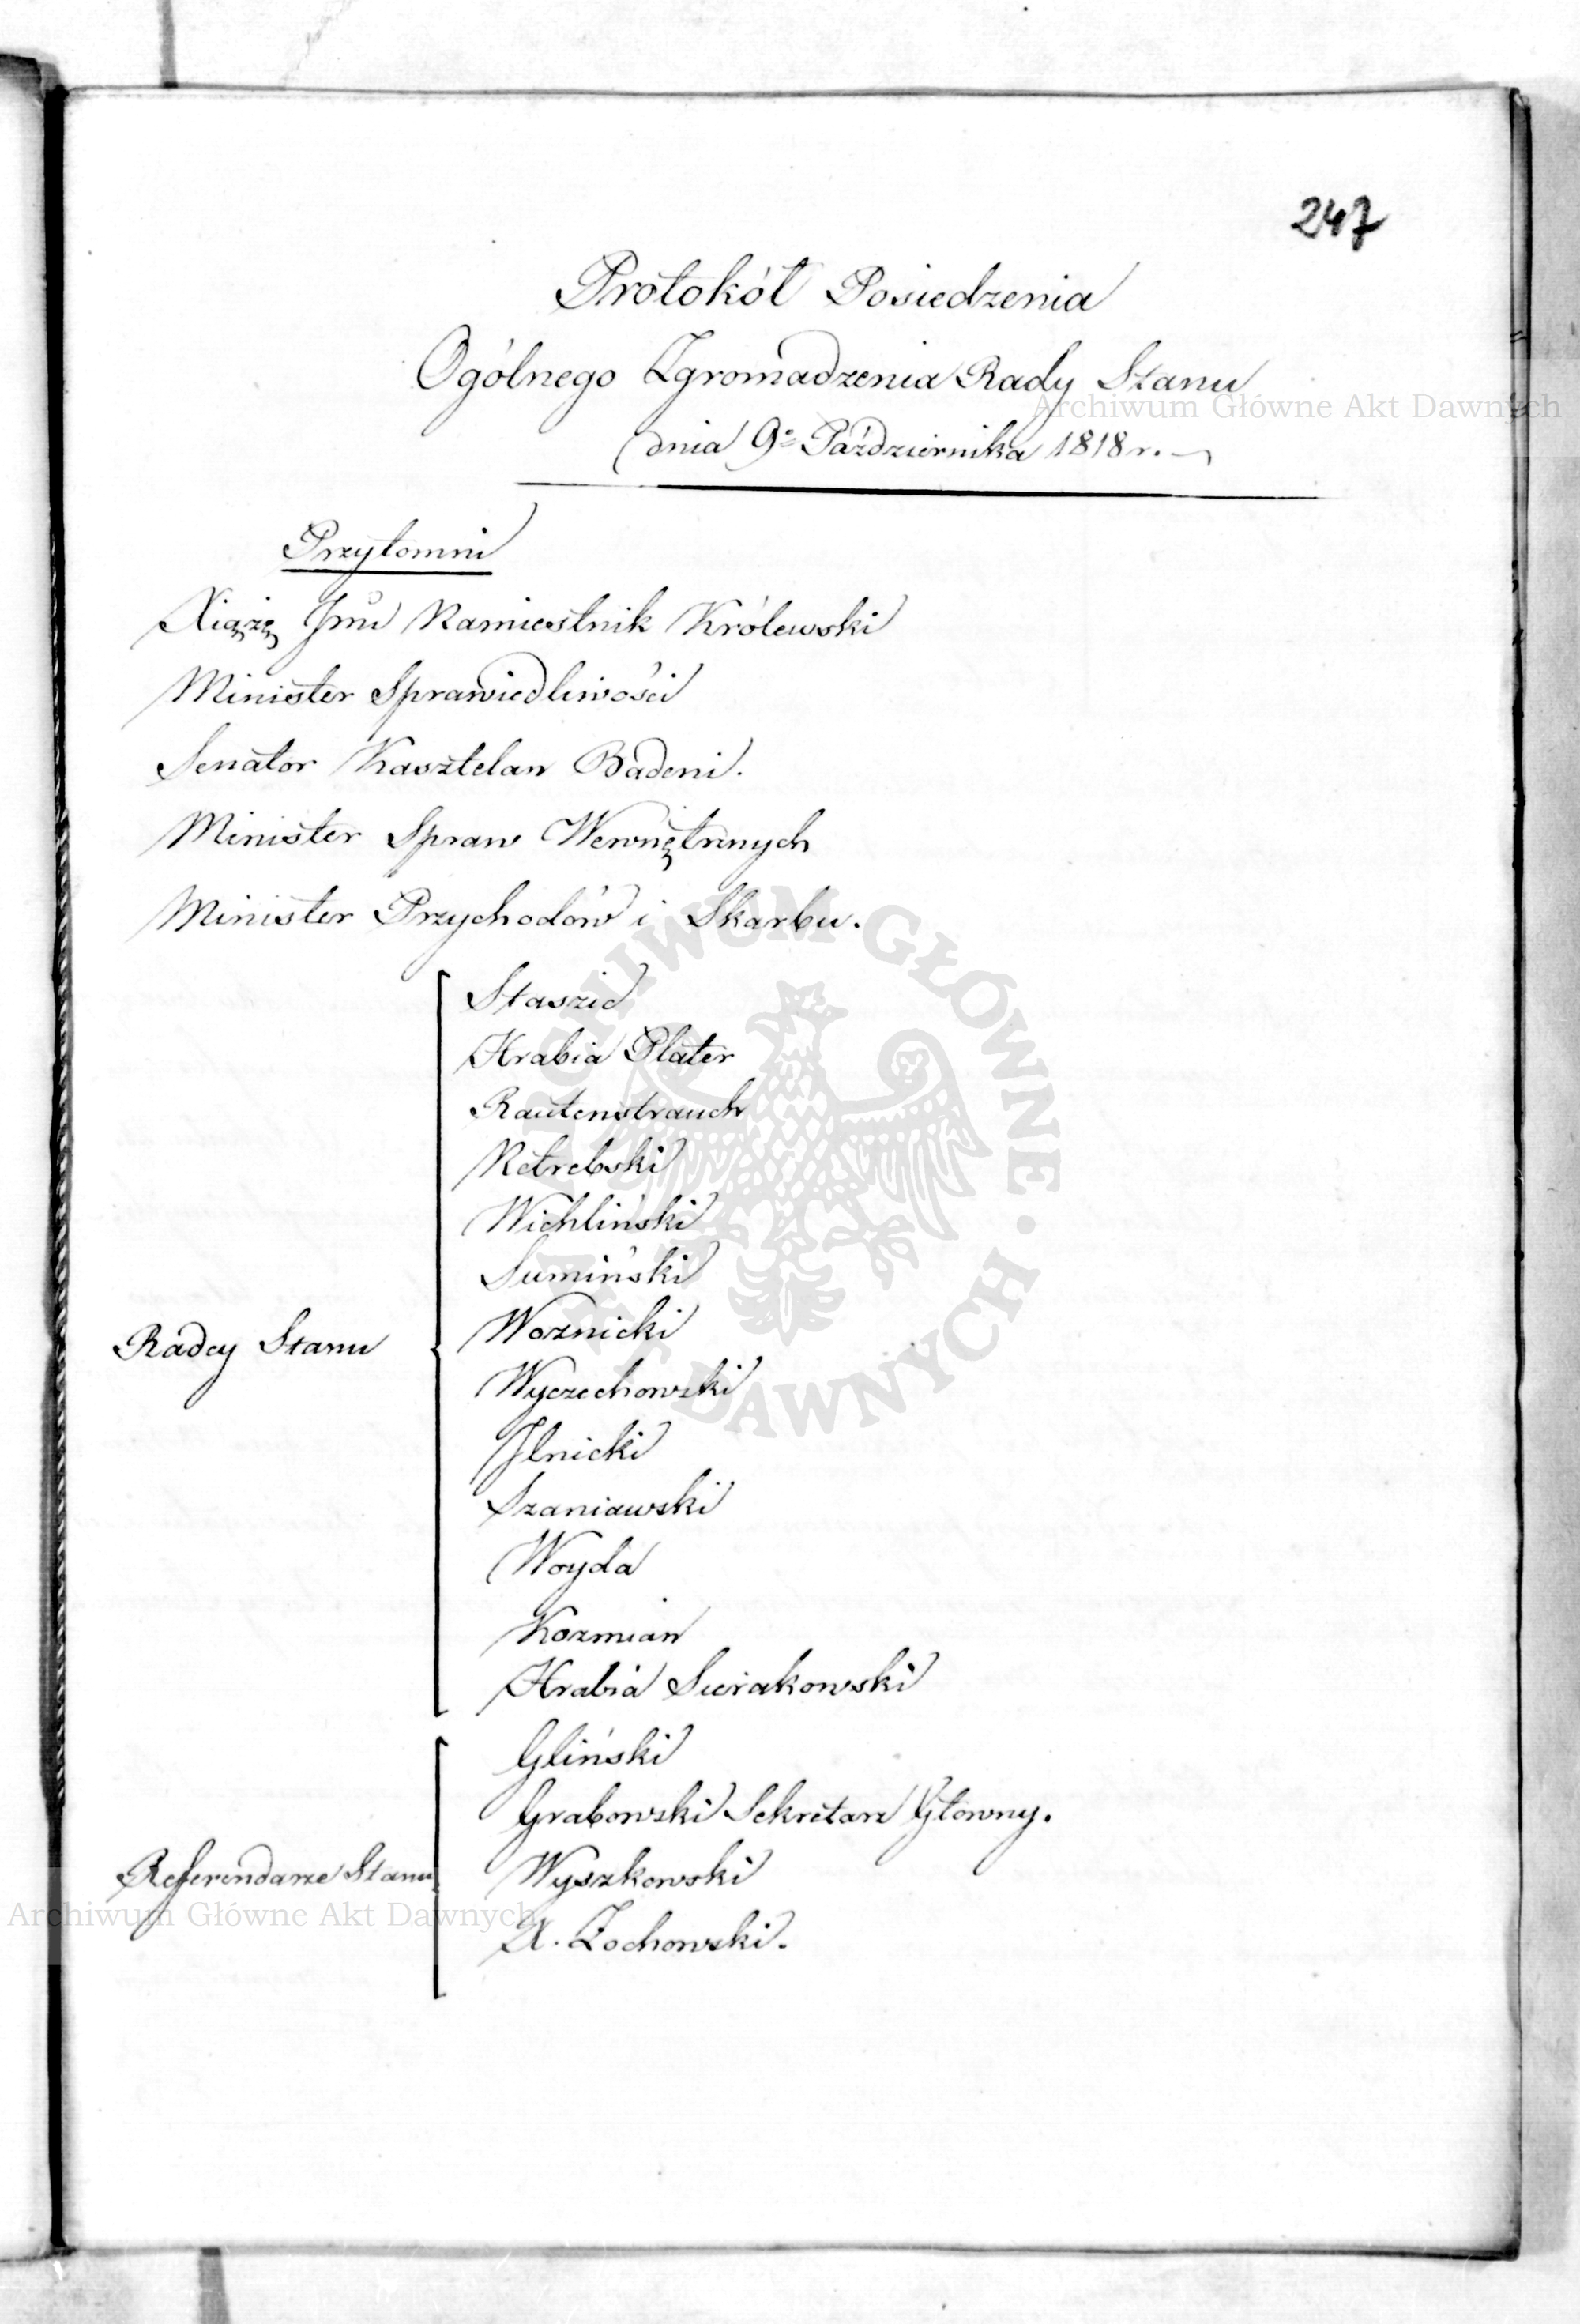 247
Protokół Posiedzenia
Ogólnego Zgromadzenia Rady Stanu
dnia 9º Października 1818 r.
Przytomni
Xiążę Jmć Namiestnik Królewski
Minister Sprawiedliwości
Senator Kasztelan Badeni.
Minister Spraw Wewnętrznych
Minister Przychodów i Skarbu.
Radcy Stanu
Staszic
Hrabia Plater
Rautenstrauch
Netrebski
Wichliński
Sumiński
Woznicki
Wyczechowski
Ilnicki
Szaniawski
Woyda
Kozmian
Hrabia Sierakowski
Referendarze Stanu
Gliński
Grabowski Sekretarz Głowny.
Wyszkowski
X. Zochowski.
Archiwum Główne Akt Dawnych
ARCHIWUM GŁÓWNE AKT DAWNYCH
Archiwum Główne Akt Dawnych